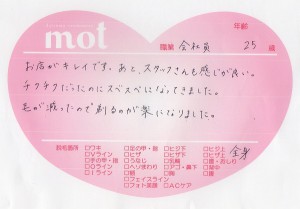 mot
年齢
職業 会社員 25 歳
お店がキレイです。あと、スタッフさんも感じが良い。
チクチクだったのにスベスベになってきました。
毛が減ったので剃るのが楽になりました。
脱毛箇所 □ワキ □足の甲・指 □ヒジ下 □ヒジ上 全身
□Vライン □ヒザ □ヒザ下 □ヒザ上
□手の甲・指 □うなじ □乳輪 □腰・おしり
□Oライン □ヘソまわり □アゴ・鼻下 □背中
□Iライン □顔 □胸 □腹
□フェイスライン
□フォト美顔 □ACケア